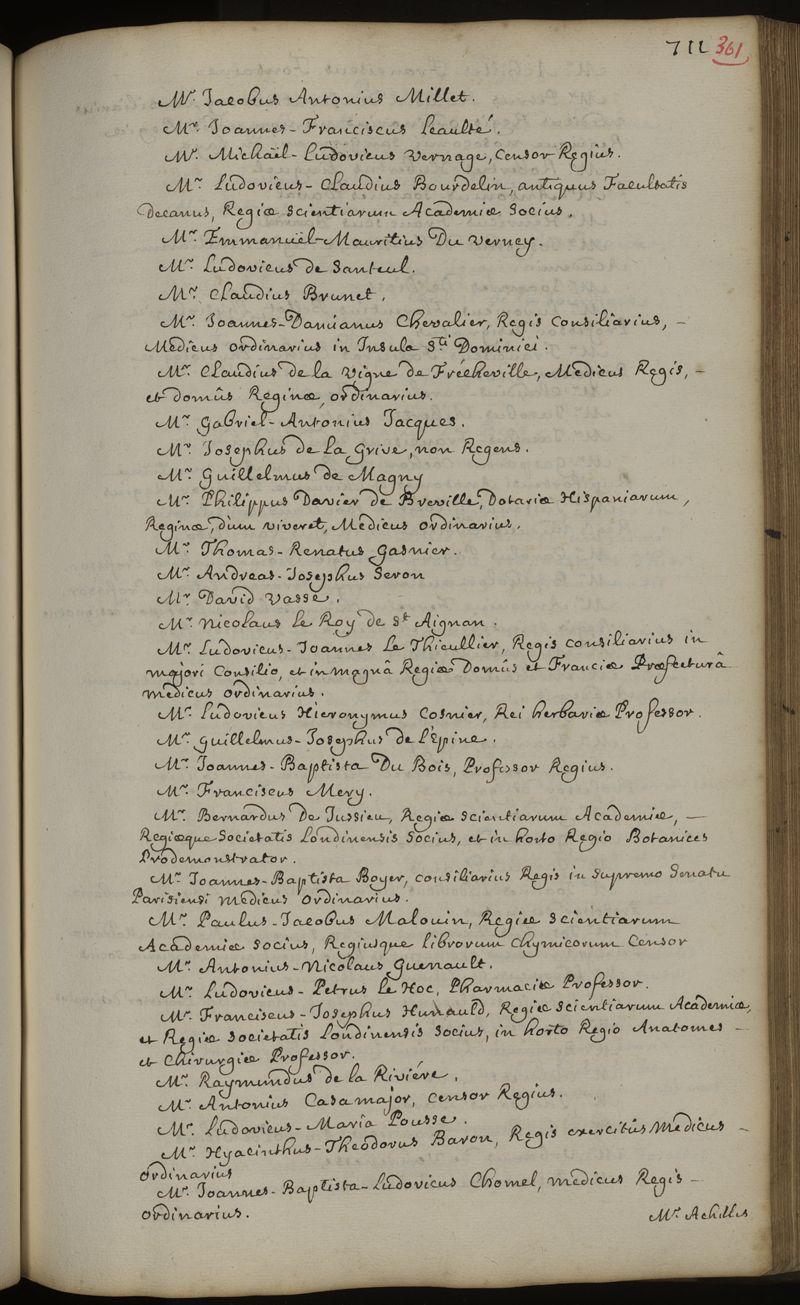 711 361
Mr. Jacobus Antonius Millet.
Mr. Joannes-Franciscus Leaulté.
Mr. Michaël-Ludovicus Vernage, Censor Regius.
Mr. Ludovicus-Claudius Bourdelin, antiquus Facultatis
Decanus, Regiæ Scientiarum Academiæ Socius.
Mr. Emmanuël-Mauritius Du Verney.
Mr. Ludovicus de Santeul.
Mr. Claudius Brunet.
Mr. Joannes-Damianus Chevalier, Regis Consiliarius, –
Medicus ordinarius in Insula Sti Dominici.
Mr. Claudius de la Vigne de Frécheville, Medicus Regis, –
et domûs Reginæ, ordinarius.
Mr. Gabriel-Antonius Jacques.
Mr. Josephus de la Grive, non Regens.
Mr. Guillelmus de Magny
Mr. Philippus Davier de Breville, Dotariæ Hispaniarum,
Reginæ, dum viveret, Medicus ordinarius.
Mr. Thomas-Renatus Gasnier.
Mr. Andreas-Josephus Seron
Mr. David Vasse.
Mr. Nicolaus Le Roy de St Aignan.
Mr. Ludovicus-Joannes Le Thieullier, Regis consiliarius in
majori Consilio, et in magnâ Regiæ Domûs et Franciæ Præfecturâ
medicus ordinarius.
Mr. Ludovicus Hieronymus Cosnier, Rei herbariæ Professor.
Mr. Guillelmus-Josephus de L'Epine.
Mr. Joannes-Baptista Du Bois, Professor Regius.
Mr. Franciscus Mery.
Mr. Bernardus De Jussieu, Regiæ Scientiarum Academiæ, –
Regiæque Societatis Londinensis Socius, et in horto Regio Botanices
Prodemonstrator.
Mr. Joannes-Baptista Boyer, consiliarius Regis in supremo Senatu
Parisiensi medicus ordinarius.
Mr. Paulus-Jacobus Malouin, Regiæ Scientiarum
Academiæ Socius, Regiusque librorum chymicorum Censor
Mr. Antonius-Nicolaus Guenault.
Mr. Ludovicus-Petrus Le Hoc, Pharmaciæ Professor.
Mr. Franciscus-Josephus Hunauld, Regiæ Scientiarum Academiæ,
et Regiæ Societatis Londinensis Socius, in horto Regio Anatomes –
et Chirurgiæ Professor.
Mr. Raymundus de la Rivière.
Mr. Antonius Casamajor, Censor Regius.
Mr. Ludovicus-Maria Pousse.
Mr. Hyacinthus-Theodorus Baron, Regis exercitûs Medicus –
ordinarius
Mr. Joannes-Baptista-Ludovicus Chomel, medicus Regis –
ordinarius.
Mr. Achilles